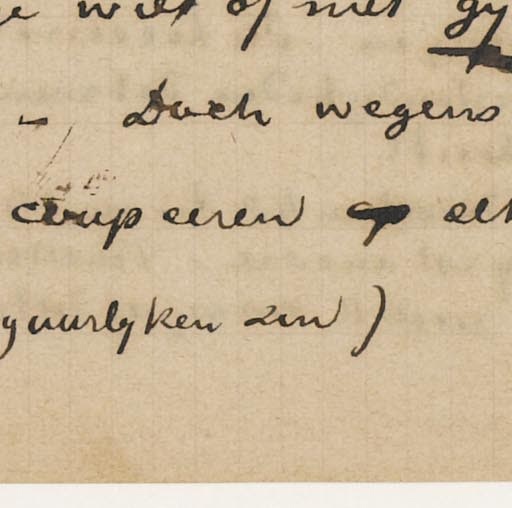 wilt of niet gy
– Doch wegens
coupeeren
guurlyken zin)